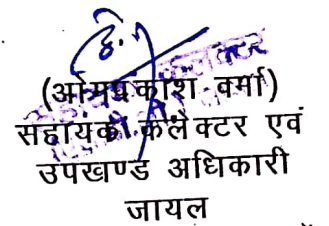 (ओमप्रकाश वर्मा)
सहायक कलैक्टर एवं
उपखण्ड अधिकारी
जायल